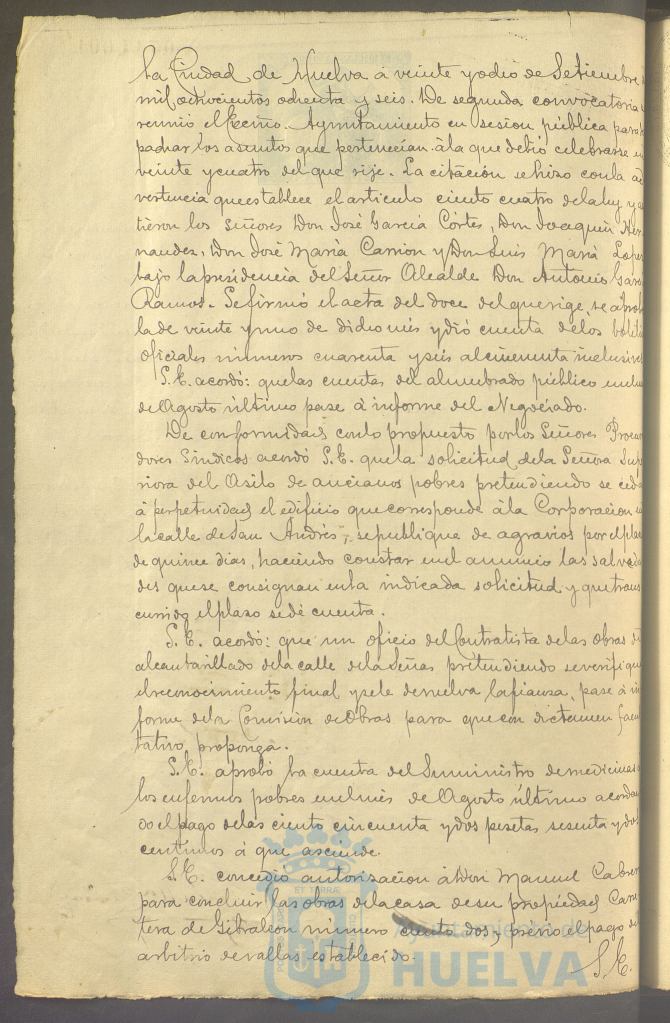 la Ciudad de Huelva á veinte y ocho de Setiembre
mil ochocientos ochenta y seis. De segunda convocatoria
reunió el Excmo. Ayuntamiento en sesion pública para
pachar los asuntos que pertenecian á la que debió celebrarse
veinte y cuatro del que rije. La citacion se hizo con la ad
vertencia que establece el articulo ciento cuatro de la ley y
tieron los Señores Don José Garcia Córtes, Don Joaquin Her
nandez, Don José Maria Carrion y Don Luis Maria Lopez
bajo la presidencia del Señor Alcalde Don Antonio Garc
Ramos. Se firmó el acta del doce del que rige, se aprob
la de veinte y uno de dicho mes y dió cuenta de los boleti
oficiales números cuarenta y seis al cincuenta inclusive
S. E. acordó: que las cuentas del alumbrado público
de Agosto último pase á informe del Negociado.
De conformidad con lo propuesto por los Señores Procu
dores Síndicos acordó S. E. que la solicitud de la Señora Supe
riora del Asilo de ancianos pobres pretendiendo se ceda
á perpetuidad el edificio que corresponde á la Corporacion
la calle de San Andrés, se publique de agravios por el pla
de quince dias, haciendo constar en el anuncio las salveda
des que se consignan en la indicada solicitud y que trans
currido el plazo se dé cuenta.
S. E. acordó: que un oficio del Contratista de las Obras
alcantarillado de la calle de la Señas pretendiendo se verifique
el reconocimiento final y se le devuelva la fianza, pase á in
forme de la Comision de Obras para que con dictamen facul
tativo, proponga.
S. E. aprobó la cuenta del Suministro de medicinas
los enfermos pobres en el mes de Agosto último acordan
do el pago de las ciento cincuenta y dos pesetas sesenta y dos
centimos á que asciende.
S. E. concedió autorizacion á Don Manuel Cabrer
para concluir las obras de la casa de su propiedad Carre
tera de Gibraleon número ciento dos, prévio el pago del
arbitrio de vallas establecido.
S. E.
Ayuntamiento de
HUELVA